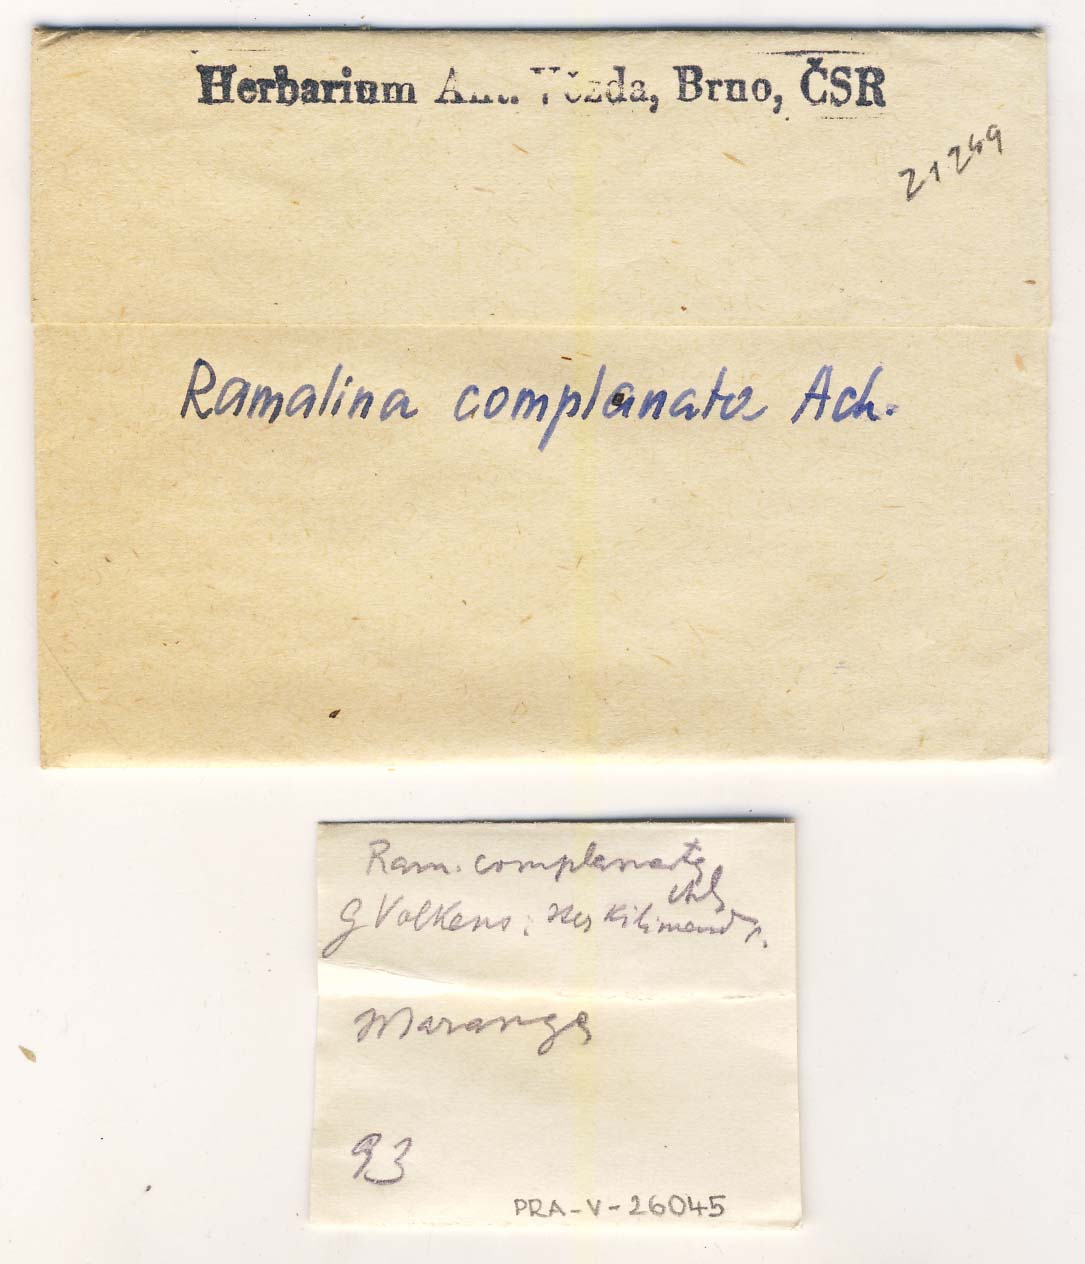 Herbarium Ant. Vězda, Brno, ČSR
21249
Ramalina complanata Ach.
Ram. complanata
Ach
G Volkens: Iter Kilimandr.
Marangu
93
PRA-V-26045